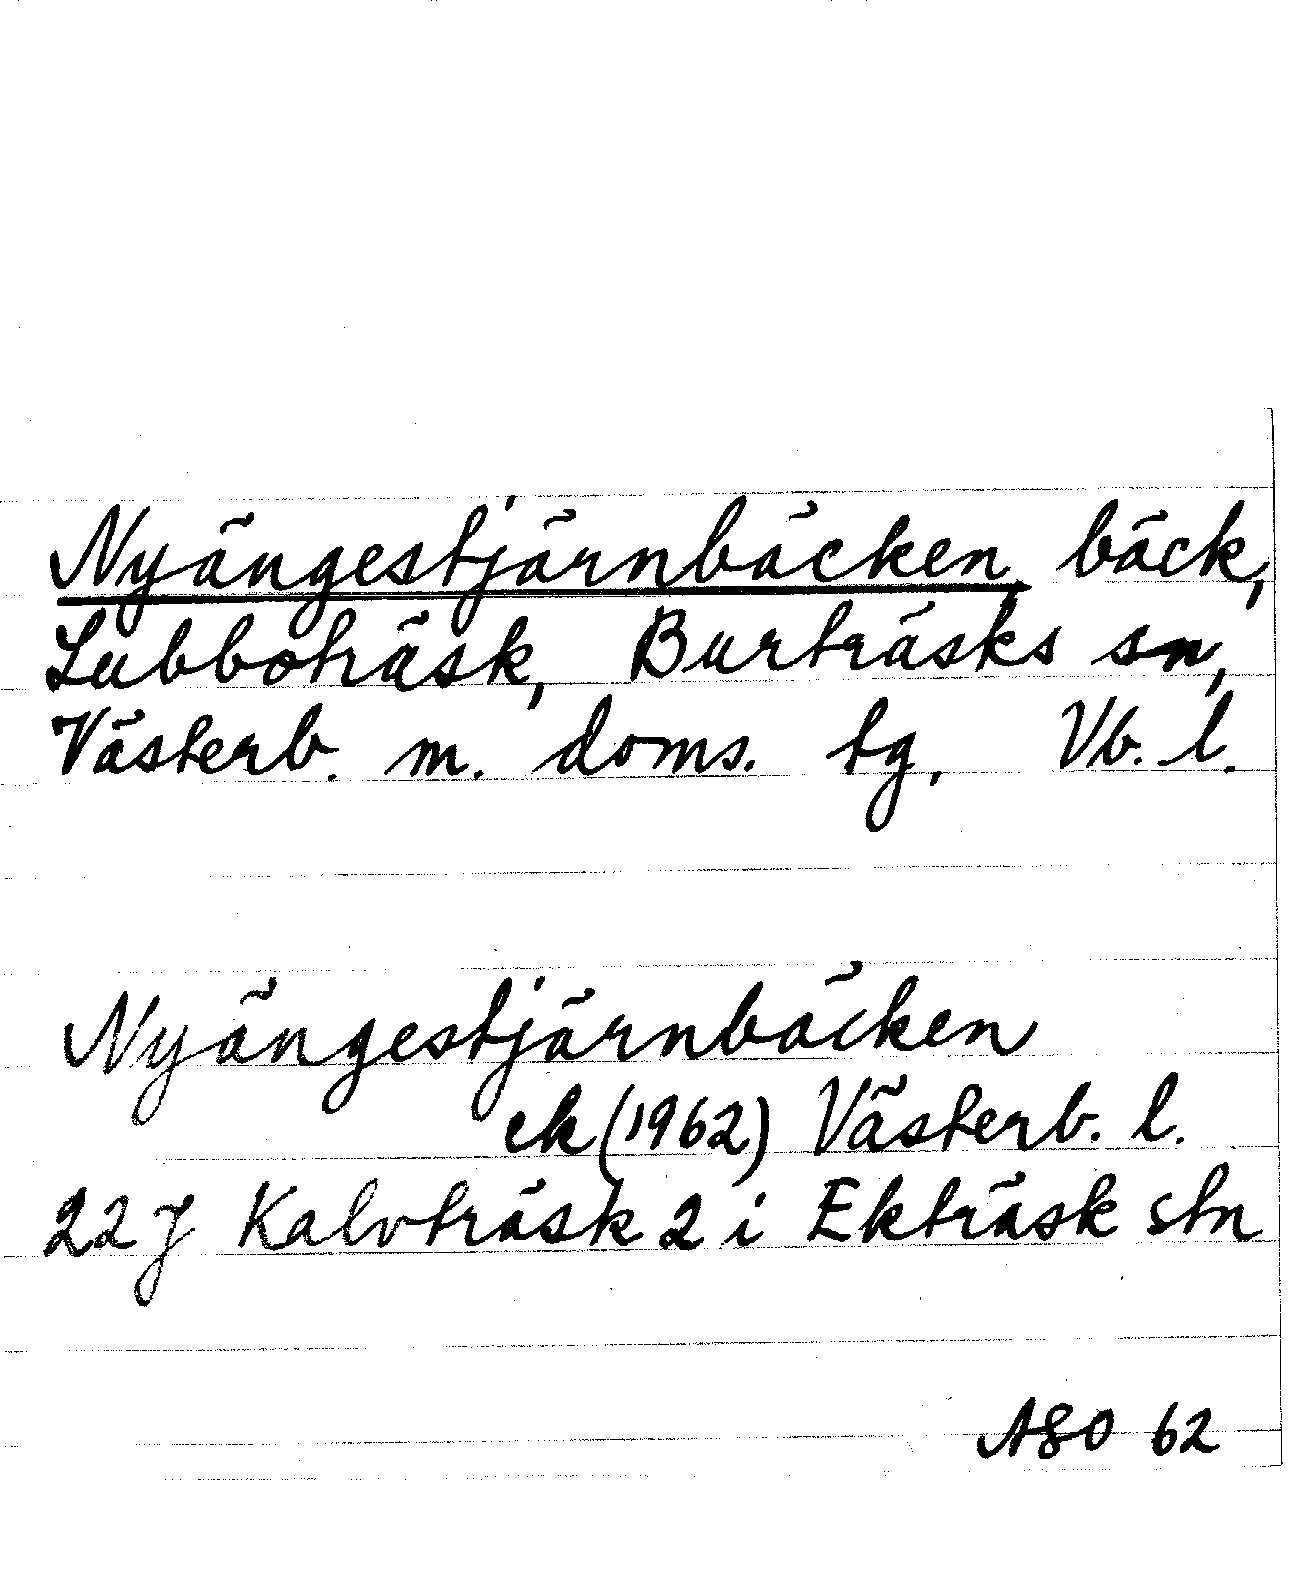 Nyängestjärnbäcken, bäck,
Lubboträsk, Burträsks sn,
Västerb. m. doms. tg, Vb. l.
Nyängestjärnbäcken
ek (1962) Västerb. l.
22J Kalvträsk 2 i Ekträsk stn
ASO 62